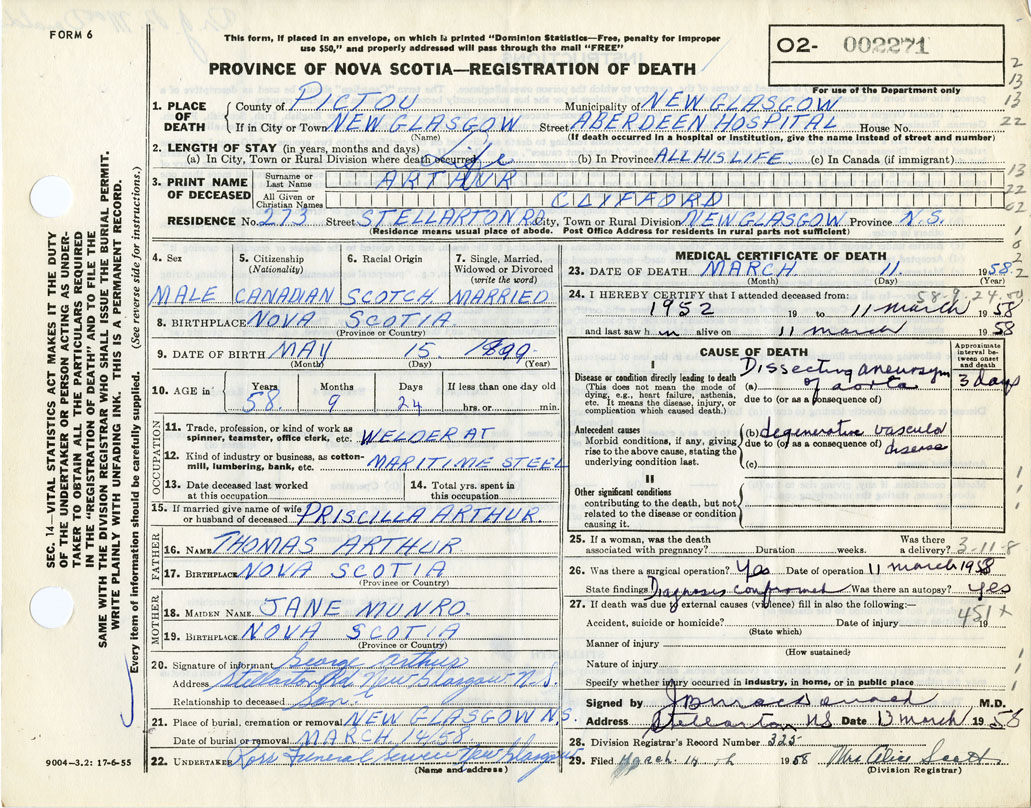 FORM 6
This form, if placed in an envelope, on which is printed "Dominion Statistics—Free, penalty for improper
use $50," and properly addressed will pass through the mail "FREE"
PROVINCE OF NOVA SCOTIA—REGISTRATION OF DEATH
O2- 002271
For use of the Department only
1. PLACE OF DEATH County of PICTOU Municipality of NEW GLASGOW
If in City or Town NEW GLASGOW Street ABERDEEN HOSPITAL House No.
(Name) (If death occurred in a hospital or Institution, give the name Instead of street and number)
2. LENGTH OF STAY (in years, months and days)
(a) In City, Town or Rural Division where death occurred Life (b) In Province ALL HIS LIFE (c) In Canada (if immigrant)
3. PRINT NAME OF DECEASED
Surname or Last Name ARTHUR
All Given or Christian Names CLYFFORD
RESIDENCE No. 273 Street STELLARTON RD. City, Town or Rural Division NEW GLASGOW Province N.S.
(Residence means usual place of abode. Post Office Address for residents in rural parts not sufficient)
4. Sex MALE
5. Citizenship (Nationality) CANADIAN
6. Racial Origin SCOTCH
7. Single, Married, Widowed or Divorced (write the word) MARRIED
8. BIRTHPLACE NOVA SCOTIA
(Province or Country)
9. DATE OF BIRTH MAY 15. 1899.
(Month) (Day) (Year)
10. AGE in Years 58. Months 9 Days 24 If less than one day old hrs. or min.
OCCUPATION
11. Trade, profession, or kind of work as spinner, teamster, office clerk, etc. WELDER AT
12. Kind of industry or business, as cotton-mill, lumbering, bank, etc. MARITIME STEEL
13. Date deceased last worked at this occupation
14. Total yrs. spent in this occupation
15. If married give name of wife or husband of deceased PRISCILLA ARTHUR.
FATHER
16. NAME THOMAS ARTHUR
17. BIRTHPLACE NOVA SCOTIA
(Province or Country)
MOTHER
18. MAIDEN NAME JANE MUNRO
19. BIRTHPLACE NOVA SCOTIA
(Province or Country)
20. Signature of informant George Arthur
Address Stellarton Rd New Glasgow N.S.
Relationship to deceased Son.
21. Place of burial, cremation or removal NEW GLASGOW N.S.
Date of burial or removal MARCH 14/58
22. UNDERTAKER Ross Funeral Service New Glasgow
(Name and address)
MEDICAL CERTIFICATE OF DEATH
23. DATE OF DEATH MARCH 11. 1958.
(Month) (Day) (Year)
58-9-24
24. I HEREBY CERTIFY that I attended deceased from:
1952 19 to 11 march 1958
and last saw him alive on 11 march 1958
CAUSE OF DEATH
Approximate interval between onset and death
I
Disease or condition directly leading to death
(This does not mean the mode of dying, e.g., heart failure, asthenia, etc. It means the disease, injury, or complication which caused death.)
(a) Dissecting aneurysm of aorta 3 days
due to (or as a consequence of)
Antecedent causes
Morbid conditions, if any, giving rise to the above cause, stating the underlying condition last.
(b) degenerative vascular disease
due to (or as a consequence of)
(c)
II
Other significant conditions
contributing to the death, but not related to the disease or condition causing it.
25. If a woman, was the death associated with pregnancy? Duration weeks. Was there a delivery? 3-11-8
26. Was there a surgical operation? Yes Date of operation 11 march 1958
State findings Diagnosis confirmed Was there an autopsy? yes
27. If death was due to external causes (violence) fill in also the following:—
Accident, suicide or homicide? Date of injury 19
(State which)
451 x
Manner of injury
(How sustained)
Nature of injury
Specify whether injury occurred in industry, in home, or in public place
Signed by M.D.
Address Stellarton NS Date 13 march 1958
28. Division Registrar's Record Number 325
29. Filed March 14 th 1958 Mrs Alice Scott
(Division Registrar)
SEC. 14—VITAL STATISTICS ACT MAKES IT THE DUTY
OF THE UNDERTAKER OR PERSON ACTING AS UNDER-
TAKER TO OBTAIN ALL THE PARTICULARS REQUIRED
IN THE "REGISTRATION OF DEATH" AND TO FILE THE
SAME WITH THE DIVISION REGISTRAR WHO SHALL ISSUE THE BURIAL PERMIT.
WRITE PLAINLY WITH UNFADING INK. THIS IS A PERMANENT RECORD.
Every item of information should be carefully supplied. (See reverse side for instructions.)
9004—3.2: 17-6-55
2
13
13
22
13
22
02
1
0
2
2